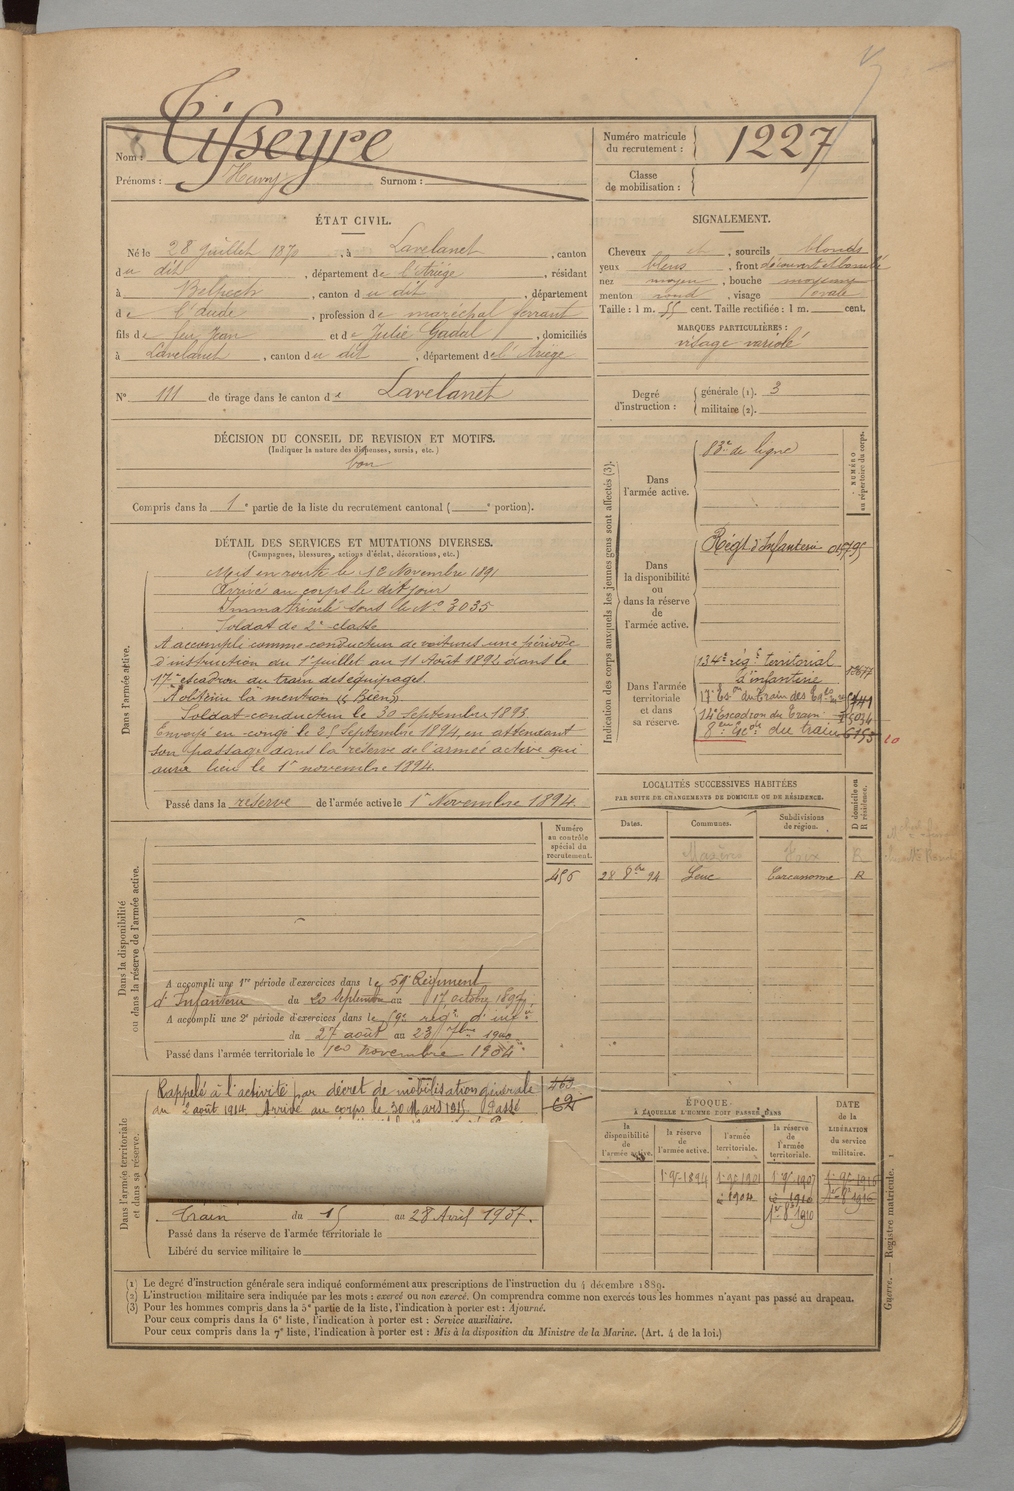 Nom : Tisseyre
Prénoms : Henry Surnom :
Numéro matricule du recrutement : 1227
Classe de mobilisation :
ÉTAT CIVIL.
Né le 28 juillet 1870, à Lavelanet, canton
du dit, département de l'Ariège, résidant
à Belpech, canton du dit, département
de l'Aude, profession de maréchal ferrant
fils de feu Jean et de Julie Gadal, domiciliés
à Lavelanet, canton du dit, département de l'Ariège
N° 111 de tirage dans le canton de Lavelanet
SIGNALEMENT.
Cheveux et, sourcils blonds
yeux bleus, front découvert et bombé
nez moyen, bouche moyenne
menton rond, visage ovale
Taille : 1 m. 55 cent. Taille rectifiée : 1 m. cent.
MARQUES PARTICULIÈRES :
visage variolé
Degré d'instruction : générale (1). 3
militaire (2).
DÉCISION DU CONSEIL DE REVISION ET MOTIFS.
(Indiquer la nature des dispenses, sursis, etc.)
bon
Compris dans la 1e partie de la liste du recrutement cantonal ( e portion).
DÉTAIL DES SERVICES ET MUTATIONS DIVERSES.
(Campagnes, blessures, actions d'éclat, décorations, etc.)
Dans l'armée active.
Mis en route le 12 Novembre 1891
Arrivé au corps le dit jour
Immatriculé sous le N° 3035
Soldat de 2e classe
A accompli comme conducteur de voitures une période
d'instruction du 1er juillet au 11 Août 1892 dans le
17e escadron du train des équipages.
A obtenu la mention « Bien »
Soldat conducteur le 30 Septembre 1893
Envoyé en congé le 25 Septembre 1894, en attendant
son passage dans la réserve de l'armée active qui
aura lieu le 1er novembre 1894.
Passé dans la réserve de l'armée active le 1er Novembre 1894.
Indication des corps auxquels les jeunes gens sont affectés (3).
NUMÉRO au répertoire du corps.
Dans l'armée active.
83e de ligne
Dans la disponibilité ou dans la réserve de l'armée active.
Régt d'Infanterie
Dans l'armée territoriale et dans sa réserve.
134e régt territorial
d'infanterie
17e Eson du Train des
14e Escadron du Train
8eme du train
LOCALITÉS SUCCESSIVES HABITÉES
PAR SUITE DE CHANGEMENTS DE DOMICILE OU DE RÉSIDENCE.
Dates. Communes. Subdivisions de région. D domicile ou R résidence.
R
28 8bre 94 Leuc Carcassonne R
Dans la disponibilité ou dans la réserve de l'armée active.
Numéro au contrôle spécial du recrutement.
456
A accompli une 1re période d'exercices dans le 59e Régiment
d'Infanterie du 20 Septembre au 17 octobre 1897
A accompli une 2e période d'exercices dans le régt d'infie
du 27 août au 23 7bre 1900
Passé dans l'armée territoriale le 1er novembre 1904
Dans l'armée territoriale et dans sa réserve.
Rappelé à l'activité par décret de mobilisation générale
du 2 août 1914 Arrivé au corps le 30 Mars 1915. Passé
463
62
Train du 15 au 28 Avril 1907.
Passé dans la réserve de l'armée territoriale le
Libéré du service militaire le
ÉPOQUE
A LAQUELLE L'HOMME DOIT PASSER DANS
la disponibilité de l'armée active. la réserve de l'armée active. l'armée territoriale. la réserve de l'armée territoriale.
DATE de la LIBÉRATION du service militaire.
1894 1901 1907 1916
1904 1910 1916
1910
(1) Le degré d'instruction générale sera indiqué conformément aux prescriptions de l'instruction du 4 décembre 1889.
(2) L'instruction militaire sera indiquée par les mots : exercé ou non exercé. On comprendra comme non exercés tous les hommes n'ayant pas passé au drapeau.
(3) Pour les hommes compris dans la 5e partie de la liste, l'indication à porter est : Ajourné.
Pour ceux compris dans la 6e liste, l'indication à porter est : Service auxiliaire.
Pour ceux compris dans la 7e liste, l'indication à porter est : Mis à la disposition du Ministre de la Marine. (Art. 4 de la loi.)
Guerre. — Registre matricule. 1